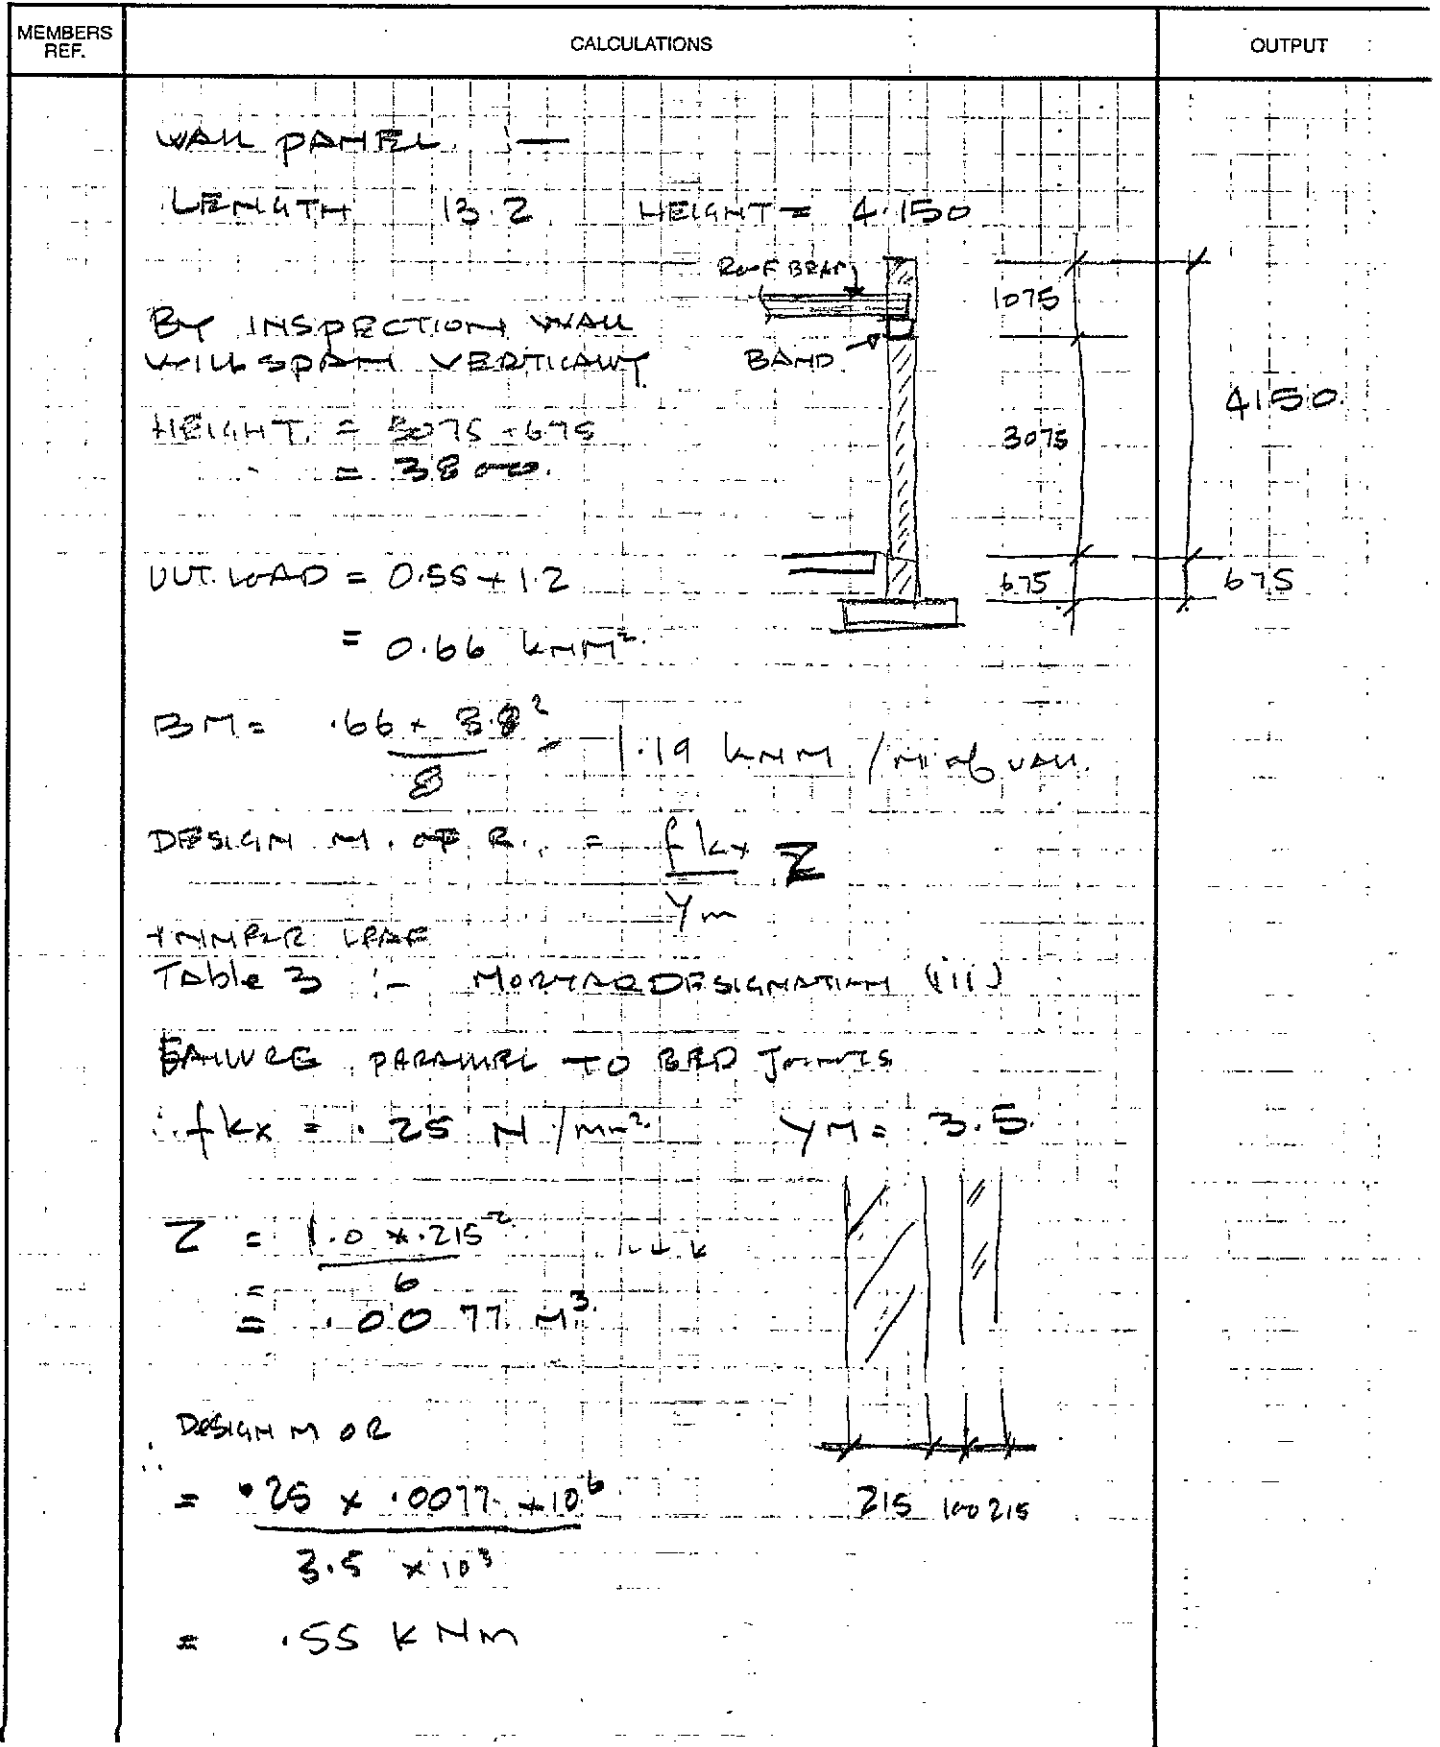 MEMBERS REF.
CALCULATIONS
OUTPUT
WALL PANEL :—
LENGTH 13.2 HEIGHT = 4.150
ROOF BEAM
BY INSPECTION WALL
WILL SPAN VERTICALLY
BAND
HEIGHT = 3075 + 675
= 3800.
1075
3075
675
4150.
675
ULT. LOAD = 0.55 × 1.2
= 0.66 kNM².
BM = .66 × 3.8² / 8 = 1.19 kNM / M of WALL.
DESIGN M. OF R. = fkx / γm Z
INNER LEAF
Table 3 :- MORTAR DESIGNATION (iii)
FAILURE PARALLEL TO BED JOINTS
∴ fkx = .25 N/mm² γM = 3.5
Z = 1.0 × .215² / 6
= .0077 M³.
∴ DESIGN M OR
= .25 × .0077 × 10⁶ / 3.5 × 10³
= .55 KNm
215 100 215